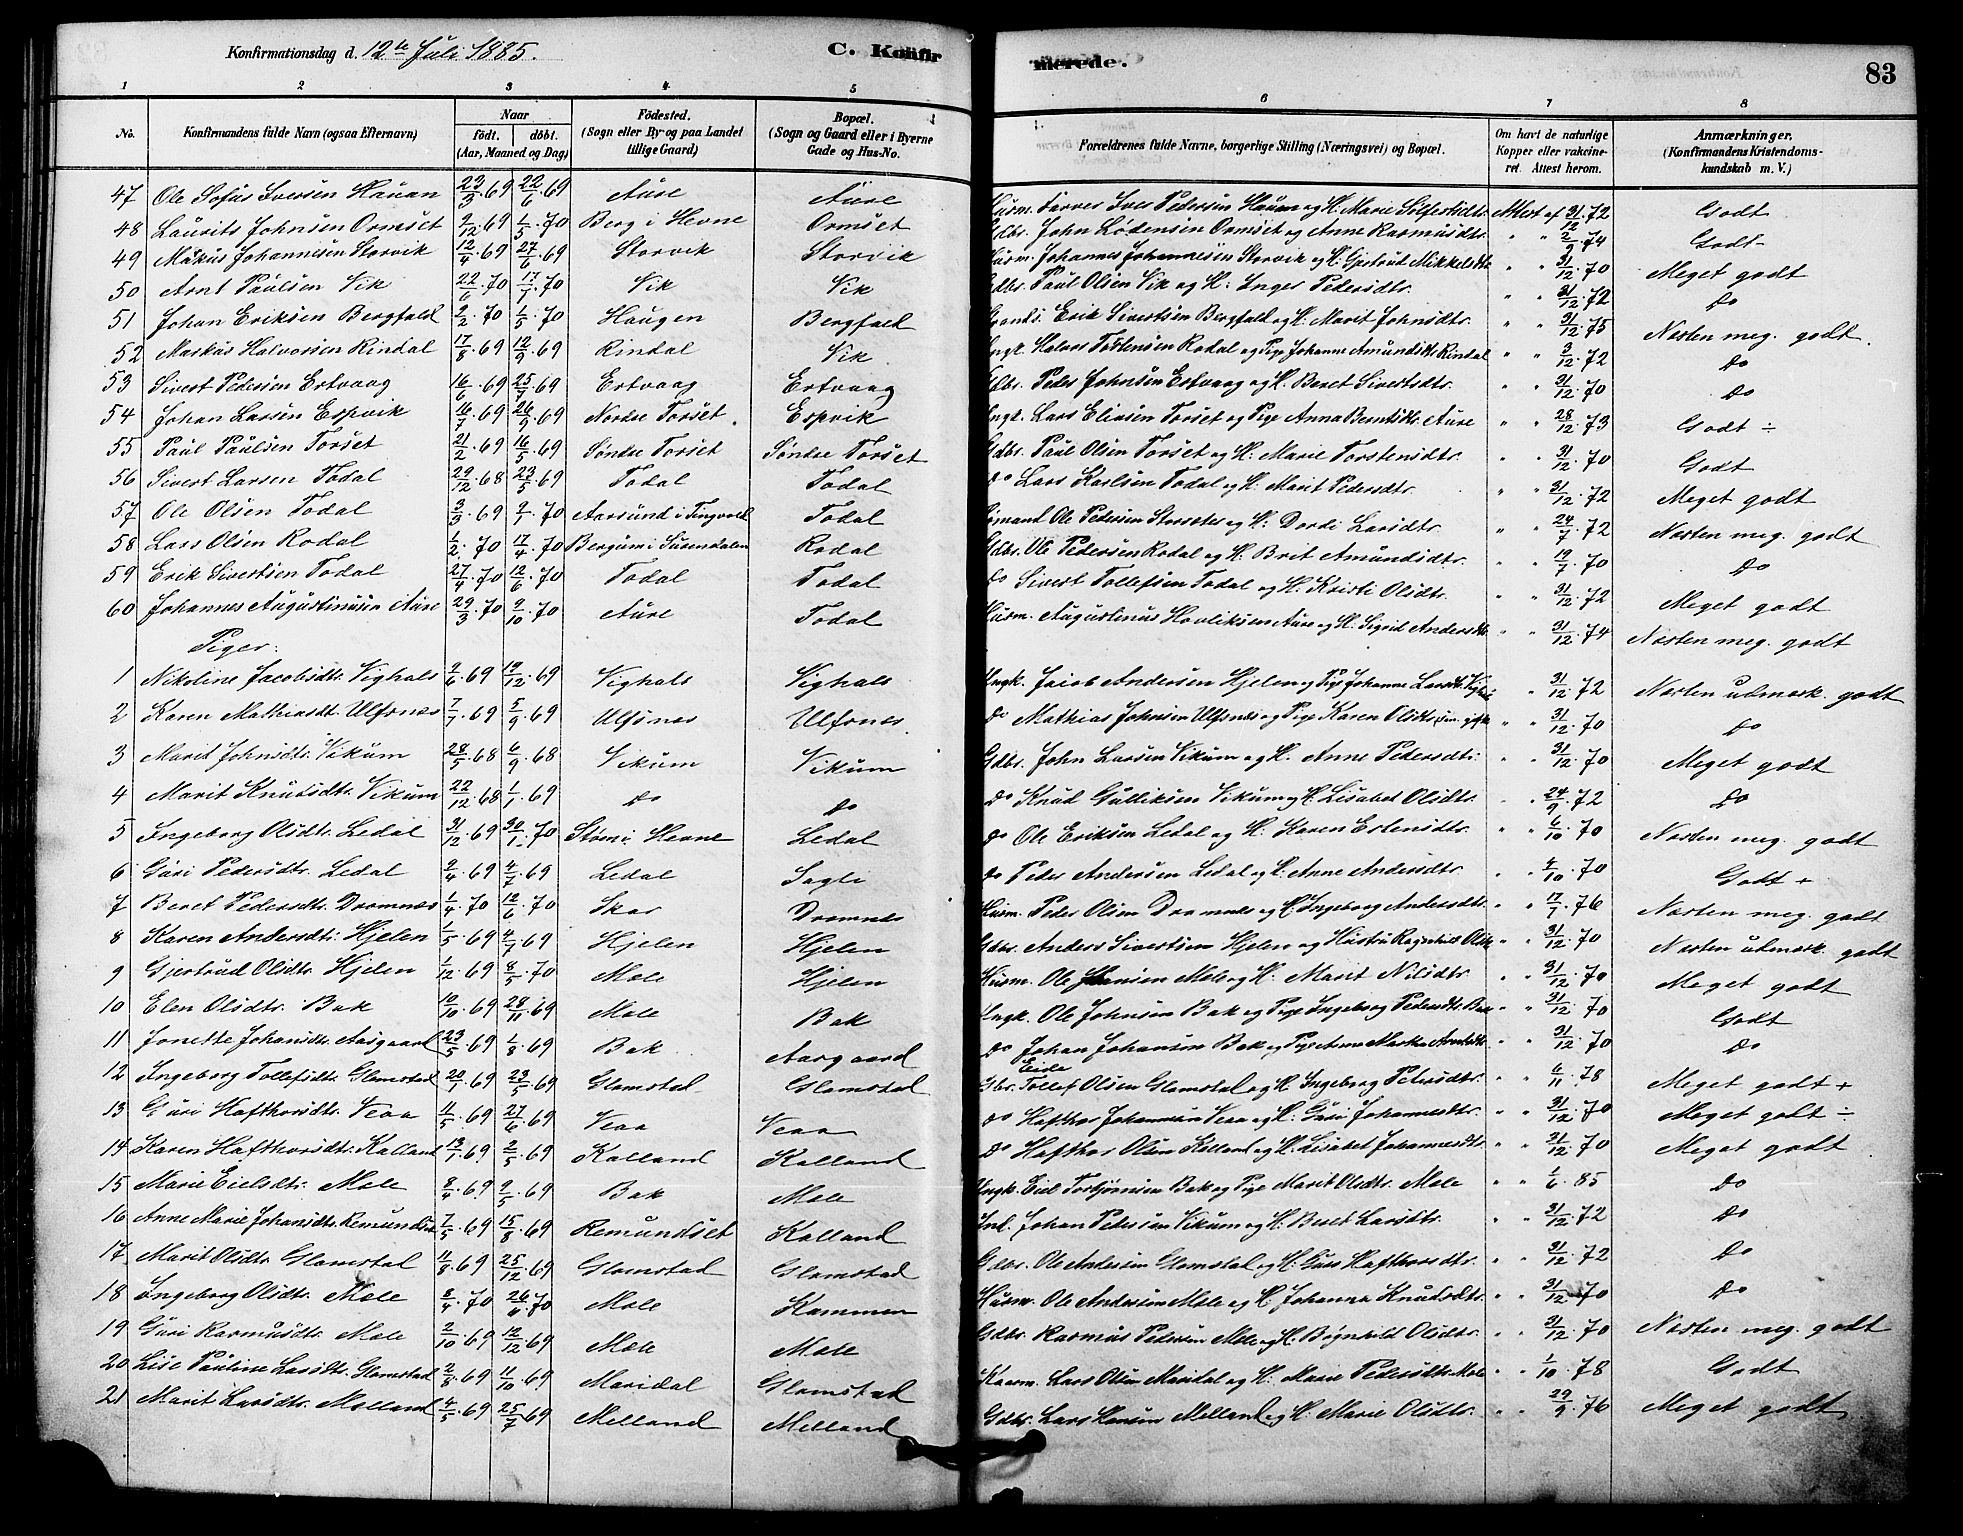 Konfirmationsdag d. 12te Juli 1885. C. Konfirmerede. 83
1 2 3 4 5 6 7 8
No. Konfirmandens fulde Navn (ogsaa Efternavn) Naar födt. döbt. (Aar, Maaned og Dag) Födested. (Sogn eller By- og paa Landet tillige Gaard) Bopæl. (Sogn og Gaard eller i Byerne Gade og Hus-No. Forældrenes fulde Navne, borgerlige Stilling (Næringsvei) og Bopæl. Om havt de naturlige Kopper eller vakcineret. Attest herom. Anmærkninger. (Konfirmandens Kristendomskundskab m. V.)
47 Ole Sofus Iversen Hauan 22/6 69 Aure Aure Godt
48 Laurits Johnsen Ormset 2/12 69 1/5 70 Berg i Hevne Ormset Gdbr. John Lødensen Ormset og Anne Rasmusdtr. " " 2/9 74 Godt
49 Markus Johannesen Storvik 12/4 69 27/6 69 Storvik Storvik Husm. Johannes Johannesen Storvik og H. Gjertrud Mikkelsdtr " " 31/12 70 Meget godt
50 Arnt Paulsen Vik 22/6 70 17/7 70 Vik Vik Gdbr. Paul Olsen Vik og H. Inger Pedersdtr. " " 31/12 72 do
51 Johan Eriksen Bergfald 2/2 70 1/5 70 Haugen Bergfald Erik Sivertsen Bergfald og H. Marit Johnsdtr. " " 31/12 75 Næsten meg. godt.
52 Markus Halvorsen Rindal 17/8 69 12/9 69 Rindal Vik Ungk. Halvor Torstensen Rodal og Pige Johanne Amundsdtr. Rindal " " 3/12 72 do
53 Sivert Pedersen Ertvaag 16/6 69 25/7 69 Ertvaag Ertvaag Gdbr. Peder Johnsen Ertvaag og H. Beret Sivertsdtr. " " 31/12 70 do
54 Johan Larsen Espvik 16/7 69 26/9 69 Nordre Torset. Espvik Ungk. Lars Eliasen Torset og Pige Anna Berntsdtr. Aure " " 28/12 73 Godt ÷
55 Paul Paulsen Torset 21/2 69 16/5 69 Søndre Torset Søndre Torset Gdbr. Paul Olsen Torset og H. Marie Torstensdtr. " " 31/12 70 Godt
56 Sivert Larsen Todal 29/12 68 23/5 69 Todal Todal do Lars Karlsen Todal og H. Marit Pedersdtr. " " 31/12 72 Meget godt
57 Ole Olsen Todal 3/3 69 2/1 70 Aarsund i Tingvold Todal Ole Pedersen Storseter og H. Dordi Larsdtr. " " 24/7 72 Næsten meg. godt
58 Lars Olsen Rodal 1/2 70 17/4 70 Bergum i Surendalen Rodal Gdbr. Ole Pedersen Rodal og H. Brit Amundsdtr. " " 19/7 70 do
59 Erik Sivertsen Todal 27/4 70 12/6 70 Todal Todal do Sivert Tollefsen Todal og H. Kristi Olsdtr. " " 31/12 72 Meget godt
60 Johannes Augustinusen Aure 29/3 70 9/10 70 Aure Todal Husm. Augustinus Hovliksen Aure og H. Sigrid Andersdtr. " " 31/12 74 Næsten meg. godt
Piger:
1 Nikoline Jacobsdtr. Vighals 2/6 69 19/12 69 Vighals Vighals Ungk. Jacob Andersen Hjelen og Pige Johanne Larsdtr. " 31/12 72 Næsten udmærk. godt
2 Karen Mathiasdt. Ulfsnes 7/7 69 5/9 69 Ulfsnes Ulfsnes. do Mathias Johnsen Ulfsnes og Pige Karen Olsdtr. " " 31/12 70 do
3 Marit Johnsdtr. Vikum 28/5 68 6/9 68 Vikum Vikum Gdbr. John Larsen Vikum og H. Anne Pedersdtr. " 31/12 70 Meget godt
4 Marit Knudsdtr. Vikum 22/12 68 1/1 69 do do do Knud Gulliksen Vikum og H. Lisabet Olsdtr. " " 24/9 72 do
5 Ingeborg Olsdtr. Ledal 31/12 69 30/1 70 Hevne Ledal do Ole Eriksen Ledal og H. Karen Estensdtr. " " 6/10 70 Næsten meg. godt
6 Guri Pedersdtr. Ledal 2/4 69 4/7 69 Ledal Sagli do Peder Andersen Ledal og H. Anne Andersdtr. " " 4/10 70 Godt +
7 Beret Pedersdtr. Dromnes 1/4 70 12/6 70 Skar Dromnes Husm. Peder Olsen Dromnes og H. Ingeborg Andersdtr. " " 17/7 76 Næsten meg. godt
8 Karen Andersdtr. Hjelen 1/5 69 4/7 69 Hjelen Hjelen Gdbr. Anders Sivertsen Hjelen og Hustru Ragnhild Olsdtr " " 31/12 70 Næsten udmærk. godt
9 Gjertrud Olsdtr. Hjelen 1/12 69 8/5 70 Mele Hjelen Husm. Ole Hansen Mele og H. Marit Nilsdtr. " " 31/12 70 Meget godt
10 Elen Olsdtr. Bak 10/10 69 28/11 69 Mele Bak Ungk. Ole Johnsen Bak og Pige Ingeborg Pedersdtr. Bak " " 31/12 70 Godt
11 Jonette Johansdtr. Aasgaard 23/5 69 1/8 69 Bak Aasgaard do Johan Johansen Bak og Pige Anne Martha Arntsdtr. " " 31/12 70 do
12 Ingeborg Tollefsdtr. Glamstad 20/1 69 23/5 69 Glamstad Glamstad Gbr. Tollef Olsen Glamstad og H. Ingeborg Petersdtr. " " 6/11 78 Meget godt +
13 Guri Hafthorsdtr. Veaa 11/5 69 27/6 69 Veaa Veaa do Hafthor Johannesen Veaa og H. Guri Johannesdtr. " " 31/12 70 Meget godt ÷
14 Karen Hafthorsdtr. Kalland 13/1 69 2/5 69 Kalland Kalland do Hafthor Olsen Kalland og H. Lisabet Johannesdtr. " " 31/12 70 Meget godt
15 Marie Eielsdtr. Mele 8/4 69 9/5 69 Bak Mele Ungk. Eiel Torbjørnsen Bak og Pige Marit Olsdtr. Mele " " 1/6 85 do
16 Anne Marie Johansdtr. Remundset 7/5 69 15/8 69 Remundset Kalland Inl. Johan Pedersen Vikum og H. Beret Larsdtr. " " 31/12 72 do
17 Marit Olsdtr. Glamstad 11/8 69 25/12 69 Glamstad Glamstad Gdbr. Ole Andersen Glamstad og H. Guri Hafthorsdtr. " " 31/12 72 do
18 Ingeborg Olsdtr. Mele 8/4 70 26/6 70 Mele Kammen Husm. Ole Andersen Mele og H. Johanna Knudsdtr. " " 31/12 70 do
19 Guri Rasmusdtr. Mele 2/10 69 12/12 69 Mele Mele Gdbr. Rasmus Pedersen Mele og H. Olsdtr. " " 31/12 70 Næsten meg. godt
20 Lise Pauline Larsdtr. Glamstad 2/8 69 11/10 69 Maridal Glamstad Lars Olsen Maridal og H. Marie Pedersdtr. Mele " " 1/10 78 Godt
21 Marit Larsdtr. Melland 4/5 69 25/7 69 Melland Melland Gdbr. Lars Hansen Melland og H. Marie Olsdtr. " " 29/9 76 Meget godt